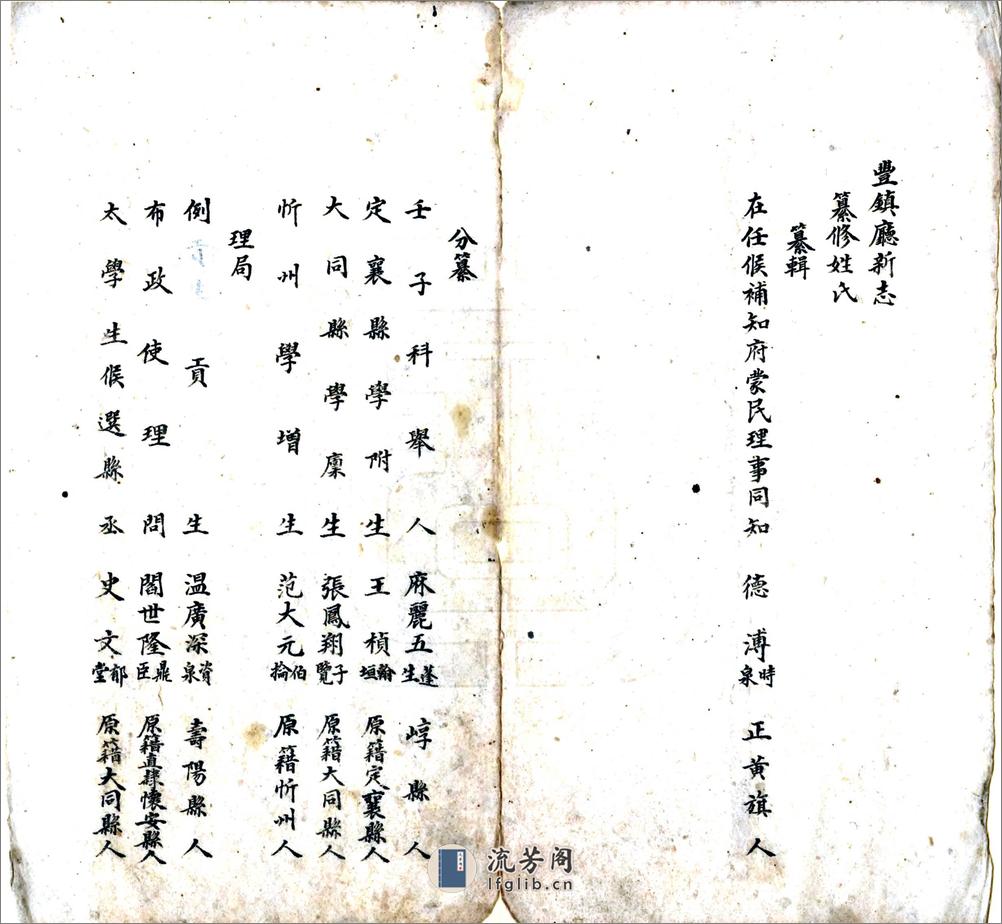 豐鎮廳新志
纂修姓氏
纂輯
在任候補知府蒙民理事同知 德溥 時泉 正黃旗人
分纂
壬子科舉人 麻麗五 蓬生 崞縣人
定襄縣學附生 王楨 翰垣 原籍定襄縣人
大同縣學廩生 張鳳翔 子覽 原籍大同縣人
忻州學增生 范大元 伯掄 原籍忻州人
理局
例貢生 溫廣深 資泉 壽陽縣人
布政使理問 閻世隆 鼎臣 原籍直肆懷安縣人
太學生候選縣丞 史文 郁堂 原籍大同縣人
流芳阁
lfglib.cn